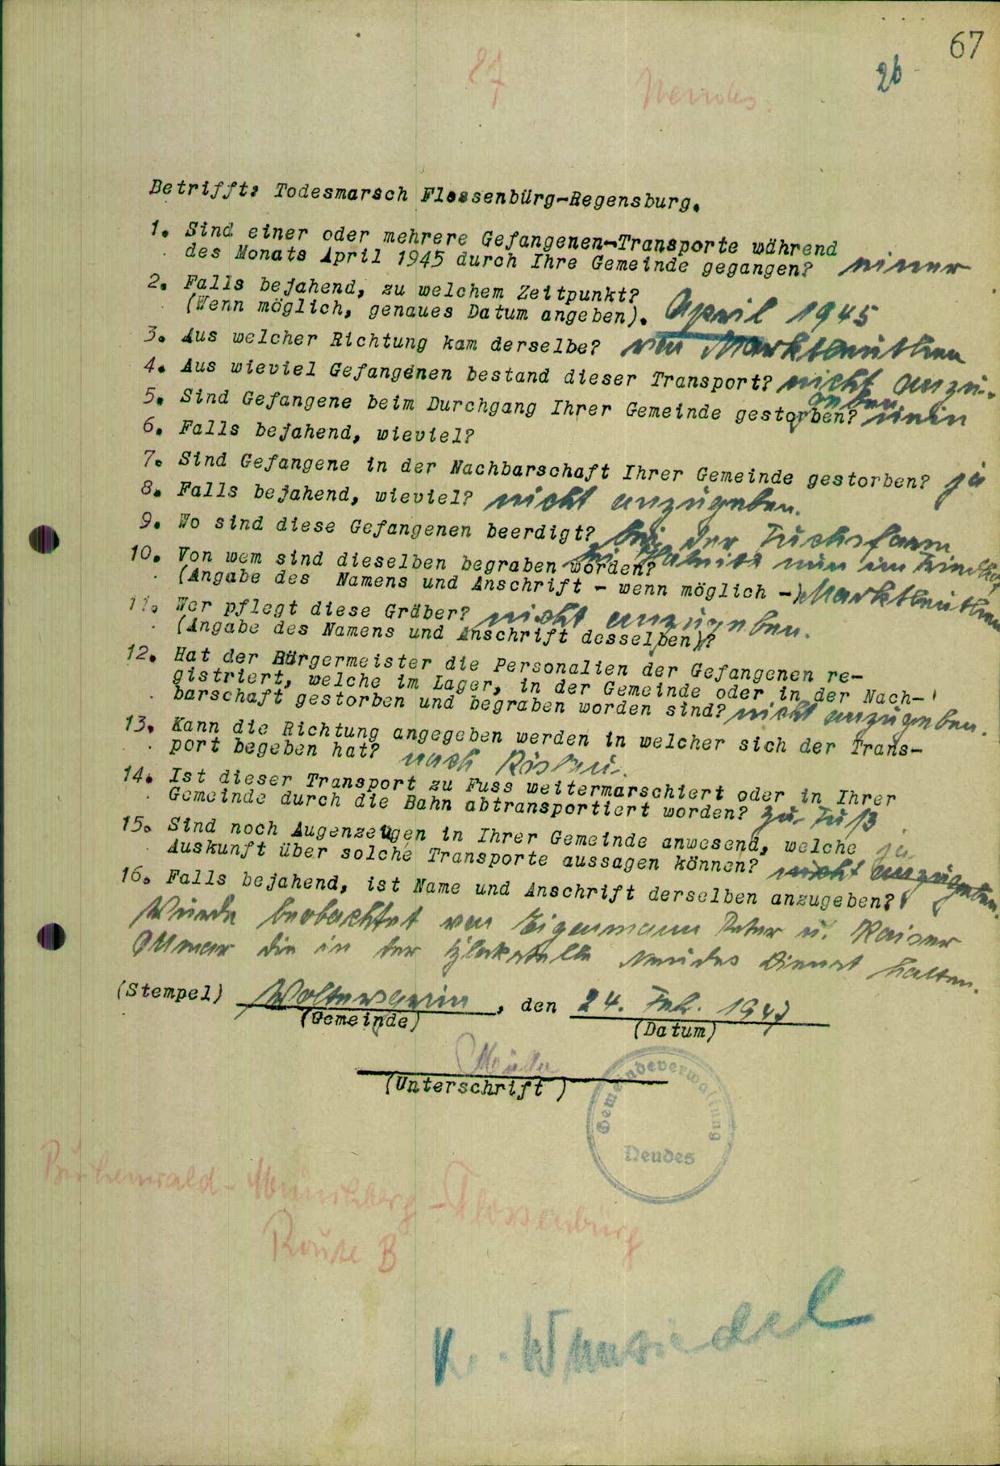 67
26
27
Neudes.
Betrifft: Todesmarsch Flossenbürg-Regensburg.
1. Sind einer oder mehrere Gefangenen-Transporte während
des Monats April 1945 durch Ihre Gemeinde gegangen? einer
2. Falls bejahend, zu welchem Zeitpunkt?
(Wenn möglich, genaues Datum angeben). April 1945
3. Aus welcher Richtung kam derselbe? von Marktleuthen
4. Aus wieviel Gefangenen bestand dieser Transport? nicht anzu-
geben
5. Sind Gefangene beim Durchgang Ihrer Gemeinde gestorben? nein
6. Falls bejahend, wieviel?
7. Sind Gefangene in der Nachbarschaft Ihrer Gemeinde gestorben? ja
8. Falls bejahend, wieviel? nicht anzugeben.
9. Wo sind diese Gefangenen beerdigt? bei der Fuchsfarm
nun im Friedhof
10. Von wem sind dieselben begraben worden?
(Angabe des Namens und Anschrift - wenn möglich -) Marktleuthen
11. Wer pflegt diese Gräber? nicht anzugeben.
(Angabe des Namens und Anschrift desselben)?
12. Hat der Bürgermeister die Personalien der Gefangenen re-
gistriert, welche im Lager, in der Gemeinde oder in der Nach-
barschaft gestorben und begraben worden sind? nicht anzugeben.
13. Kann die Richtung angegeben werden in welcher sich der Trans-
port begeben hat? nach Röslau.
14. Ist dieser Transport zu Fuss weitermarschiert oder in Ihrer
Gemeinde durch die Bahn abtransportiert worden? zu Fuß
15. Sind noch Augenzeugen in Ihrer Gemeinde anwesend, welche ja
Auskunft über solche Transporte aussagen können? nicht anzugeben.
16. Falls bejahend, ist Name und Anschrift derselben anzugeben?
Wurde beobachtet von Eigenmann Peter u. Kaiser
Otmar die in der Blockstelle Neudes Dienst halten.
(Stempel) Woltersgrün, den 24. Feb. 1947
(Gemeinde) (Datum)
Müller
(Unterschrift)
Gemeindeverwaltung
Neudes
Buchenwald - Münchberg - Flossenbürg
Route B
Kr. Wunsiedel